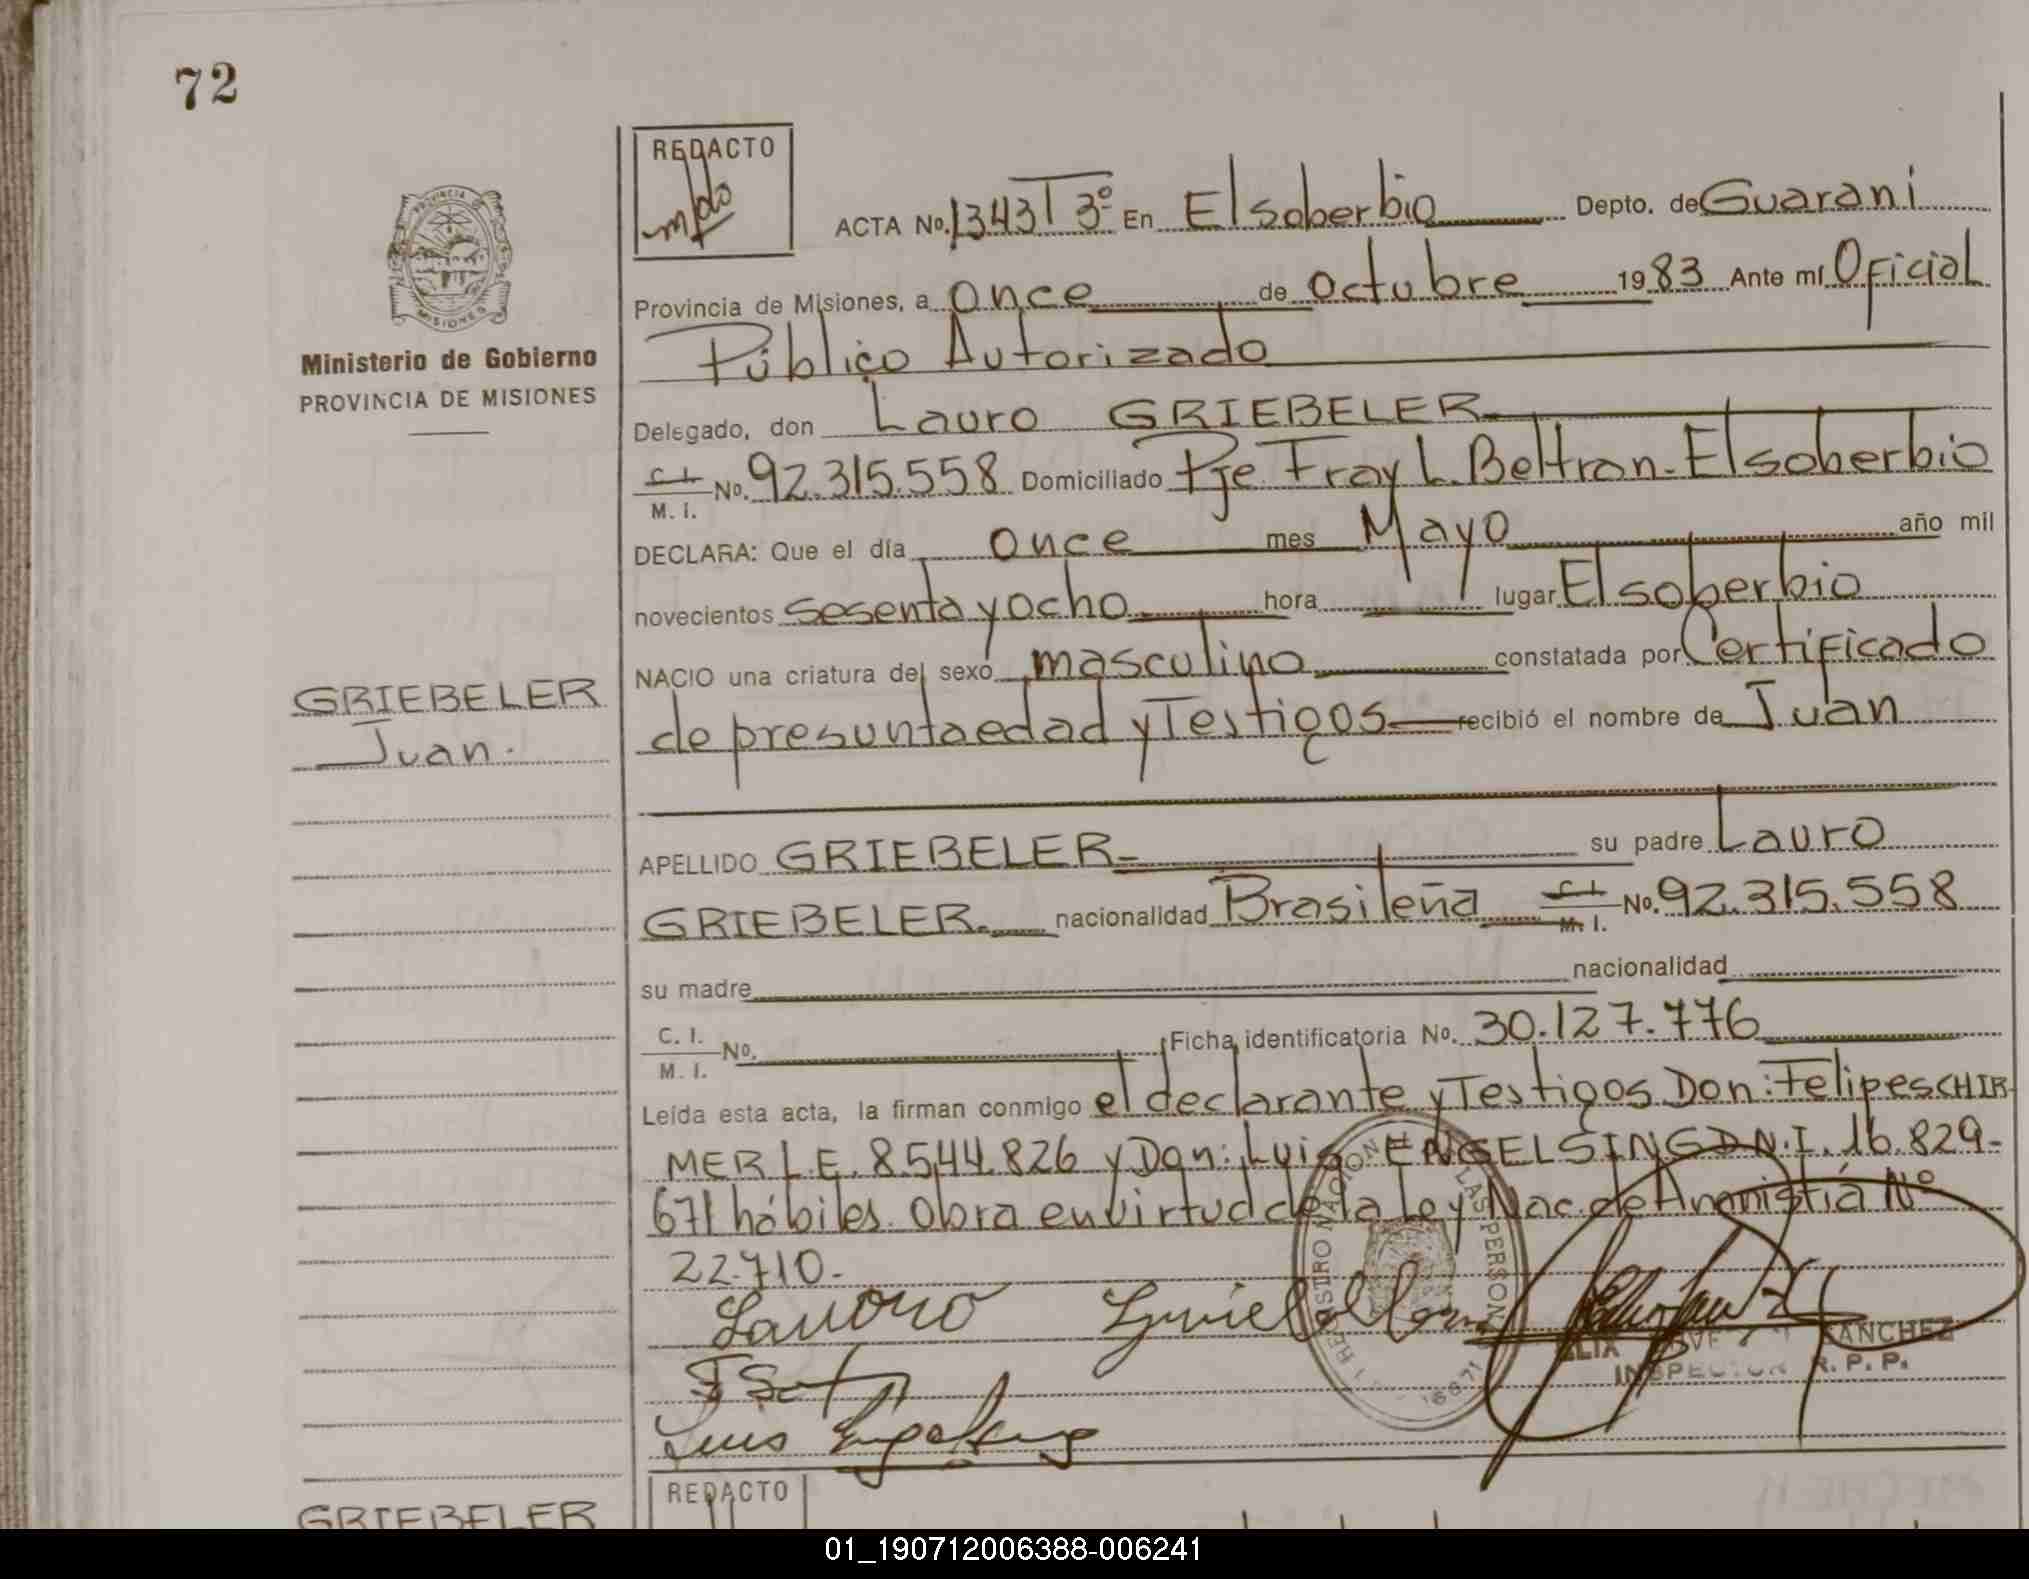 72
REDACTO
ACTA No. 1343 T 3º En El soberbio Depto. de Guarani
Provincia de Misiones, a once de Octubre 1983 Ante mí Oficial
Público Autorizado
PROVINCIA
MISIONES
Ministerio de Gobierno
PROVINCIA DE MISIONES
Delegado, don Lauro GRIEBELER
C.I.
M. I. No. 92.315.558 Domiciliado Pje Fray L. Beltran - El soberbio
DECLARA: Que el día once mes Mayo año mil
novecientos sesenta y ocho hora lugar El soberbio
NACIO una criatura del sexo masculino constatada por Certificado
GRIEBELER
Juan.
de presunta edad y Testigos recibió el nombre de Juan
APELLIDO GRIEBELER su padre Lauro
GRIEBELER nacionalidad Brasileña C.I. M. I. No. 92.315.558
su madre nacionalidad
C. I.
M. I. No. Ficha identificatoria No. 30.127.776
Leída esta acta, la firman conmigo el declarante y Testigos Don: Felipe SCHIR-
MER L.E. 8.544.826 y Don: Luis ENGELSING D.N.I. 16.829-
671 hábiles. Obra en virtud de la Ley Nac. de Amnistiá Nº
22.710.-
REGISTRO NACIONAL DE LAS PERSONAS
SANCHEZ
INSPECTOR R. P. P.
Luis Engelsing
REDACTO
GRIEBELER
01_190712006388-006241